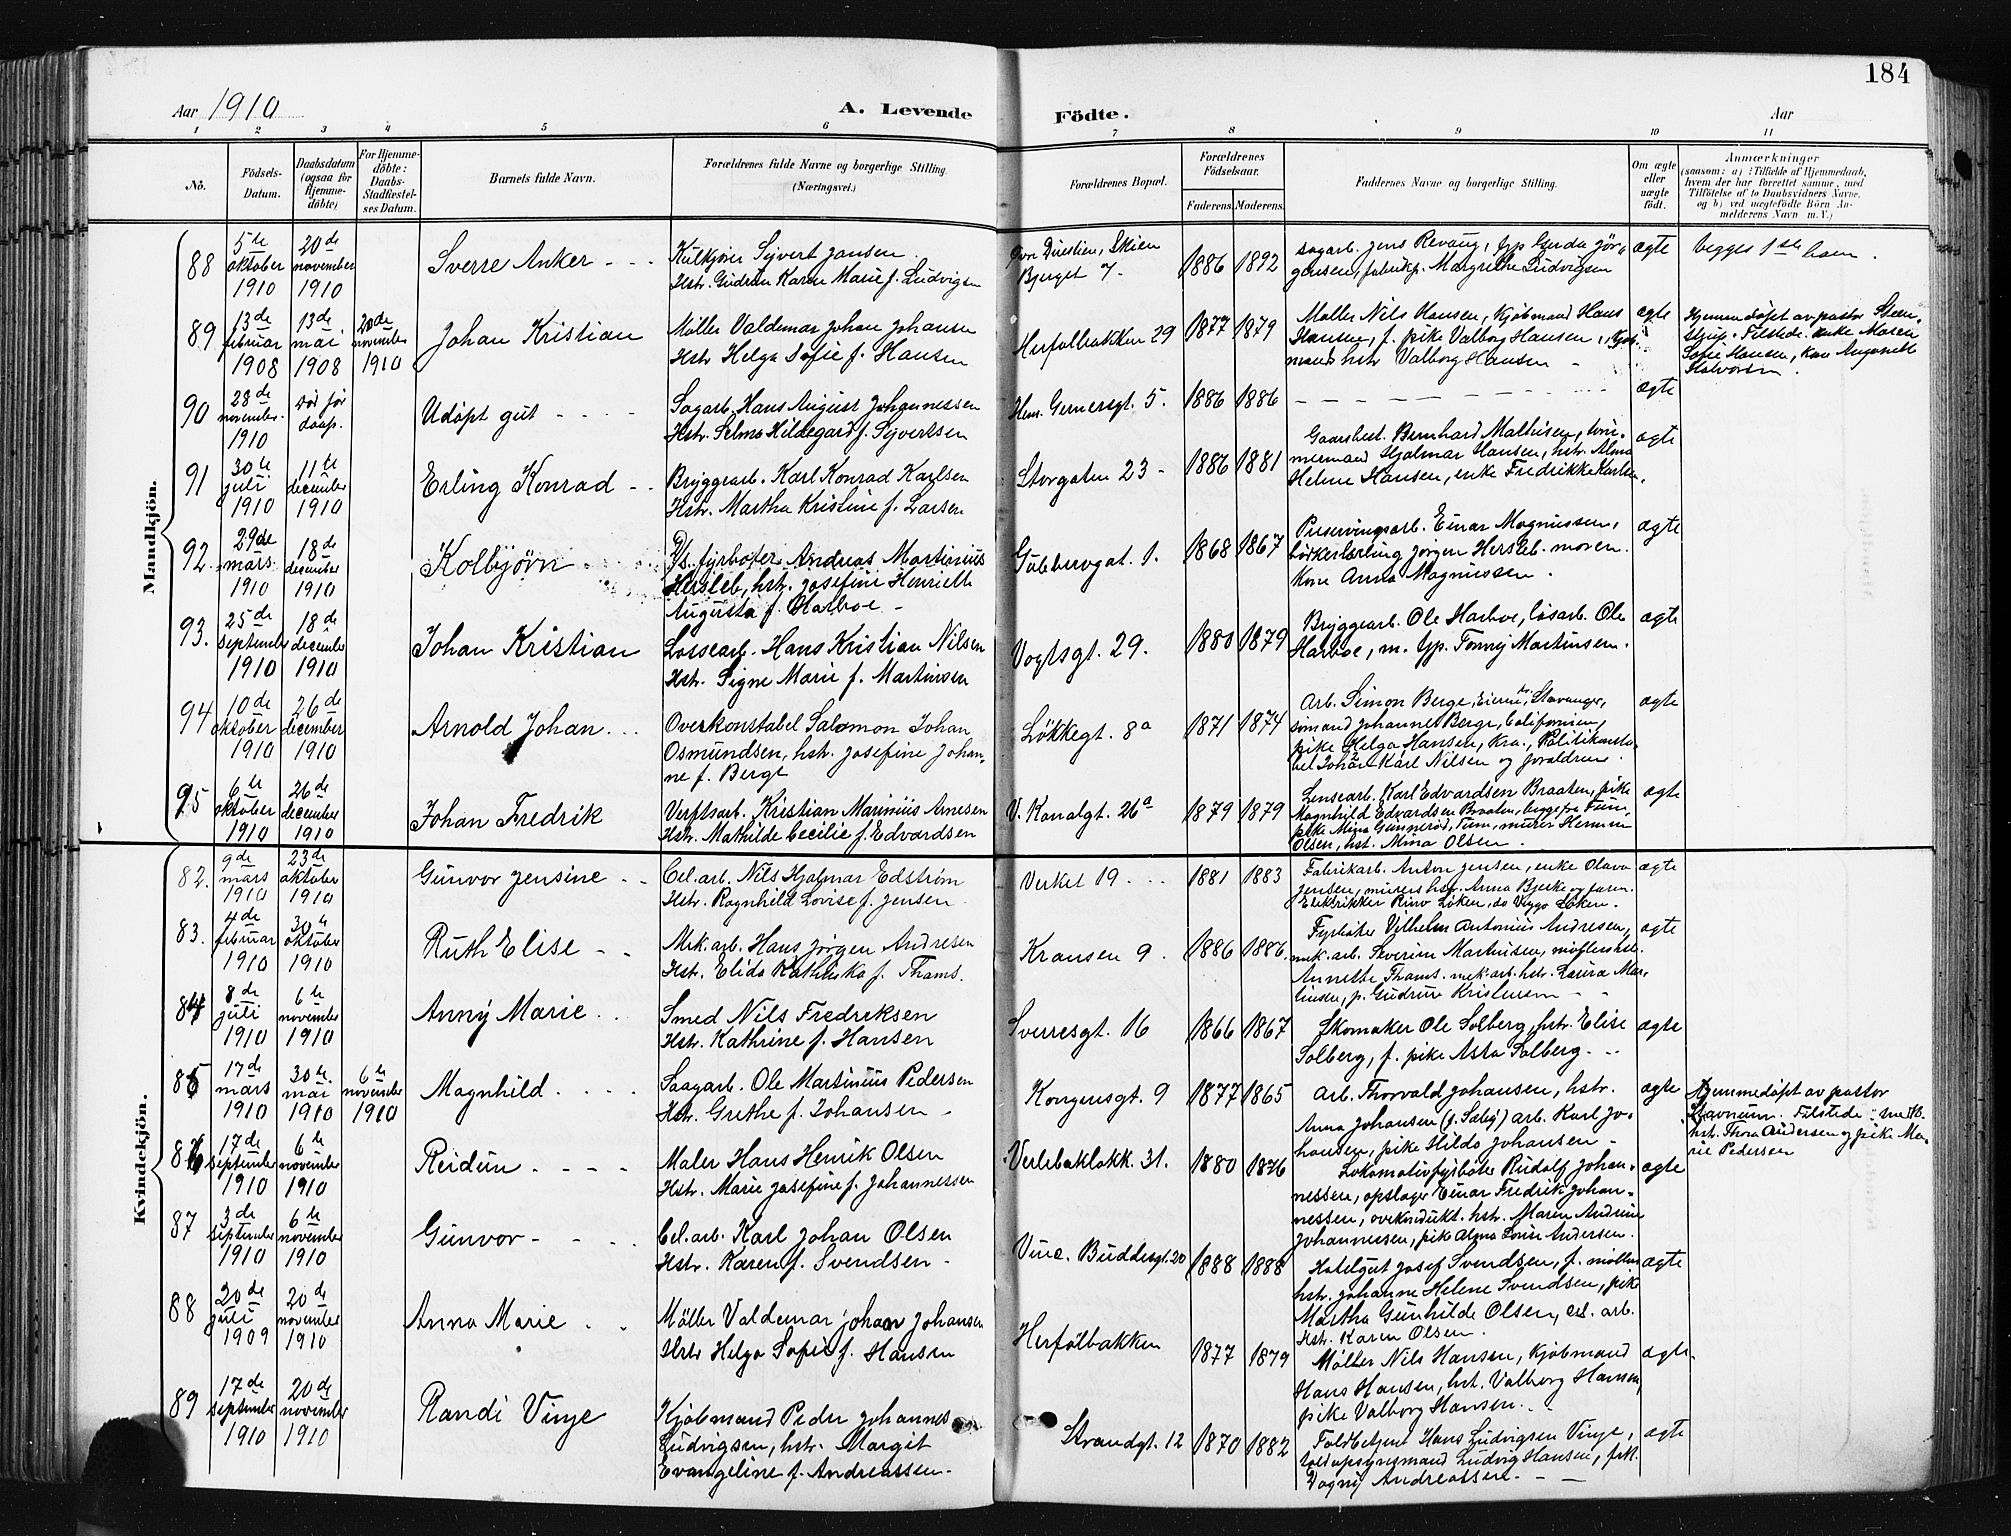 184
Aar 1910
A. Levende
Födte.
Aar
1 2 3 4 5 6 7 8 9 10 11
Nö.
Födsels-Datum.
Daabsdatum (ogsaa for Hjemme-döbte)
For Hjemme-döbte: Daabs-Stadfæstel-ses Datum.
Barnets fulde Navn.
Forældrenes fulde Navne og borgerlige Stilling. (Næringsvei.)
Forældrenes Bopæl.
Forældrenes Födselsaar.
Faderens. Moderens.
Faddernes Navne og borgerlige Stilling.
Om ægte eller uægte födt.
Anmærkninger
(saasom: a) i Tilfælde af Hjemmedaab,
hvem der har forrettet samme, med
Tilföielse af to Daabsvidners Navne,
og b) ved uægtefödte Börn An-
melderens Navn m. V.)
Mandkjön.
88 5te oktober 1910 20de november 1910
Sverre Anker
Kulkjører Syvert Jansen
Hstr. Gudrun Karen Marie f. Ludvigsen
Bjerget 7.
1886 1892
sagarb. Jens Revaug, Gerda Jør-
gensen, Margrethe Ludvigsen
ægte
begges 1ste barn.
89 13de februar 1908 13de mai 1908 20de november 1910
Johan Kristian
Møller Valdemar Johan Johansen
Hstr Helga Sofie f. Hansen
Herfølbakken 29
1877 1879
Møller Nils Hansen, Kjøbmand Hans
Hansen, f. pike Valborg Hansen, Kjøb-
mands hstr Valborg Hansen
ægte
Hjemmedøpt av pastor Steen-
strup. Tilstede: enke Maren
Sofie Hansen, kone
Halvorsen.
90 28de november 1910 død før daap.
Udøpt gut
Sagarb. Hans August Johannessen
Hstr. Selma Hildegard f. Syvertsen
Hem. Gernersgt. 5.
1886 1886
ægte
91 30te juli 1910 11te december 1910
Erling Konrad
Bryggearb. Karl Konrad Karlsen
Hstr. Martha Kristine f. Larsen
Storgaten 23
1886 1881
Gaardbest. Bernhard Mathisen, tøm-
mermand Hjalmar Hansen, hstr. Alma
Helene Hansen, enke Fredrikke Karlsen.
ægte
92. 29de mars 1910 18de december 1910
Kolbjørn
D/s. fyrbøter Andreas Martinius
Hersleb, hstr. Josefine Henriette
Augusta f. Harboe
Gubberogat. 1.
1868 1867
Einar Magnussen,
bødkerlærling Jørgen Hersleb. moren.
Kone Anna Magnussen.
ægte
93. 25de september 1910 18de december 1910
Johan Kristian
Lossearb. Hans Kristian Nilsen
Hstr. Signe Marie f. Martinsen
Vogtsgt. 29.
1880 1879
Bryggearb. Ole Harboe, løsarb. Ole
Harboe, m. gp. Fanny Martinsen.
ægte
94 10de oktober 1910 26de december 1910
Arnold Johan
Overkonstabel Salomon Johan
Osmundsen, hstr. Josefine Johan-
ne f. Berge
Løkkegt. 8a
1871 1874
Arb. Simon Berge, Stavanger,
sømand Johannes Berge, Californien,
pike Helga Hansen, Kra., Politikonsta-
bel Johan Karl Nilsen og forældrene.
ægte
95 6te oktober 1910 26de december 1910
Johan Fredrik
Verftsarb. Kristian Marinius Arnesen
Hstr. Mathilde Cecilie f. Edvardsen
V. Kanalgt. 26a
1879 1879
Lensearb. Karl Edvardsen Braaten, pike
Magnhild Edvardsen Braaten, begge fra Tune,
pike Mina Gunnerød, Tune, murer Herman
Olsen, hst. Mina Olsen.
ægte
Kvindekjön.
82. 9de mars 1910 23de oktober 1910
Gunvor Jensine
Cel.arb. Nils Hjalmar Edstrøm
Hstr. Ragnhild Lovise f. Jensen
Verket 19
1881 1883
Fabrikarb. Anton Jensen, enke Olava
Jensen, murers hstr. Anna Bjerke og faren.
Elektrikker Løken, do Viggo Løken.
ægte
83. 4de februar 1910 30te oktober 1910
Ruth Elise
Mek.arb. Hans Jørgen Andresen
Hst. Elida Kathinka f. Thams.
Kransen 9
1886 1886
Fyrbøter Vilhelm Antonius Andresen,
mek. arb. Severin Martinsen, møllers hstr.
Annette Thams. mek.arb. hstr. Laura Mar-
tinsen, p. Gudrun Kristensen
ægte
84 8de juli 1910 6te november 1910
Anny Marie
Smed Nils Fredriksen
Hstr. Kathrine f. Hansen
Sverresgt. 16
1866 1867
Skomaker Ole Solberg, hstr. Elise
Solberg, f. pike Asta Solberg.
ægte
85 17de mars 1910 30te mai 1910 6te november 1910
Magnhild
Saagarb. Ole Martinius Pedersen
Hstr. Grethe f. Johansen
Kongensgt. 9
1877 1865
Arb. Thorvald Johansen, hstr.
Anna Johansen (f. Sæby) arb. Karl Jo-
hansen, pike Hilda Johansen
ægte
Hjemmedøpt av pastor
Stavnum. Tilstede:
hstr. Thora Andersen og pike Ma-
rie Pedersen
86 17de september 1910 6te november 1910
Reidun
Maler Hans Henrik Olsen
Hstr. Marie Josefine f. Johannessen
Verkbakløkk. 31.
1880 1876
Lokomotivfyrbøter Rudolf Johan-
nessen, opslager Einar Fredrik Johan-
nessen, overkondukt. hstr. Maren Andrine
Johannessen, pike Alma Lovise Andersen.
ægte
87 3de september 1910 6te november 1910
Gunvor
Cel.arb. Karl Johan Olsen
Hstr. Karen f. Svendsen
Vinc. Buddesgt. 20
1888 1888
Hotelgut Josef Svendsen, f. møllers
hstr. Johanne Helene Svendsen, pike
Martha Gunhilde Olsen, cel. arb.
Hstr. Karen Olsen.
ægte
88 20de juli 1909 20de november 1910
Anna Marie
Møller Valdemar Johan Johansen
Hstr Helga Sofie f. Hansen
Herfølbakken
1877 1879
Møller Nils Hansen, Kjøbmand
Hans Hansen, hst. Valborg Hansen,
pike Valborg Hansen.
ægte
89 17de september 1910 20de november 1910
Randi Vinje
Kjøbmand Peder Johannes
Ludvigsen, hstr. Margit
Evangeline f. Andreassen.
Strandgt. 12
1870 1882
Toldbetjent Hans Ludvigsen Vinje,
toldopsynsmand Ludvig Hansen, frk.
Dagny Andreassen.
ægte